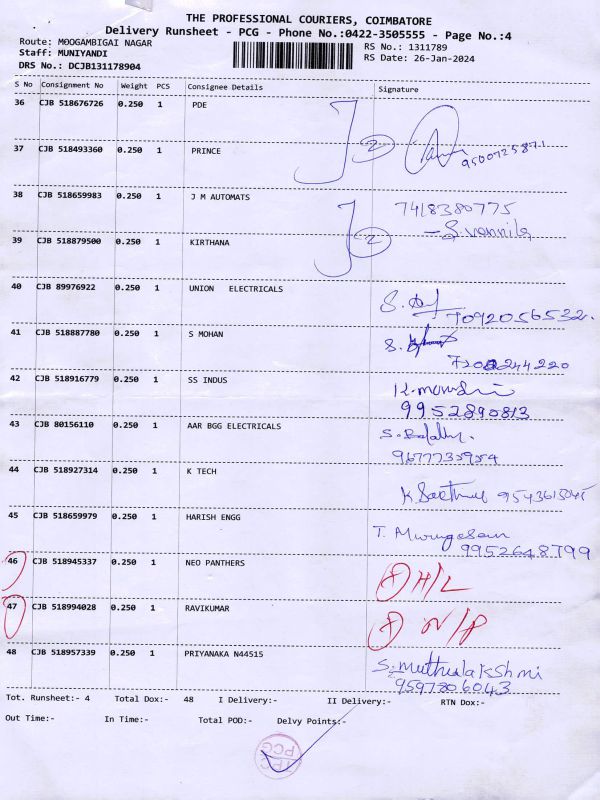 THE PROFESSIONAL COURIERS, COIMBATORE
Delivery Runsheet - PCG - Phone No.:0422-3505555 - Page No.:4
Route: MOOGAMBIGAI NAGAR RS No.: 1311789
Staff: MUNIYANDI RS Date: 26-Jan-2024
DRS No.: DCJB131178904
S No Consignment No Weight PCS Consignee Details Signature
36 CJB 518676726 0.250 1 PDE
37 CJB 518493360 0.250 1 PRINCE 2 9500725871
38 CJB 518659983 0.250 1 J M AUTOMATS 7418380775
39 CJB 518879500 0.250 1 KIRTHANA 2
40 CJB 89976922 0.250 1 UNION ELECTRICALS
7092056532.
41 CJB 518887780 0.250 1 S MOHAN
42 CJB 518916779 0.250 1 SS INDUS
9952890813
43 CJB 80156110 0.250 1 AAR BGG ELECTRICALS
44 CJB 518927314 0.250 1 K TECH
45 CJB 518659979 0.250 1 HARISH ENGG T. Murugesan
9952648799
46 CJB 518945337 0.250 1 NEO PANTHERS H/L
47 CJB 518994028 0.250 1 RAVIKUMAR
48 CJB 518957339 0.250 1 PRIYANAKA N44515 S. muthulakshmi
9597306043
Tot. Runsheet:- 4 Total Dox:- 48 I Delivery:- II Delivery:- RTN Dox:-
Out Time:- In Time:- Total POD:- Delvy Points:-